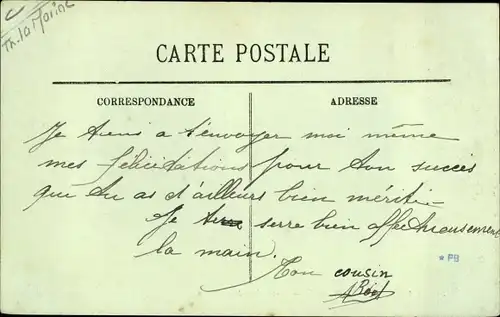 Th. la Marine
CARTE POSTALE
CORRESPONDANCE
ADRESSE
Je tiens a t'envoyer moi même
mes félicitations pour ton succès
que tu as d'ailleurs bien mérité –
Je serre bien affectueusement
la main.
Ton cousin
* PB